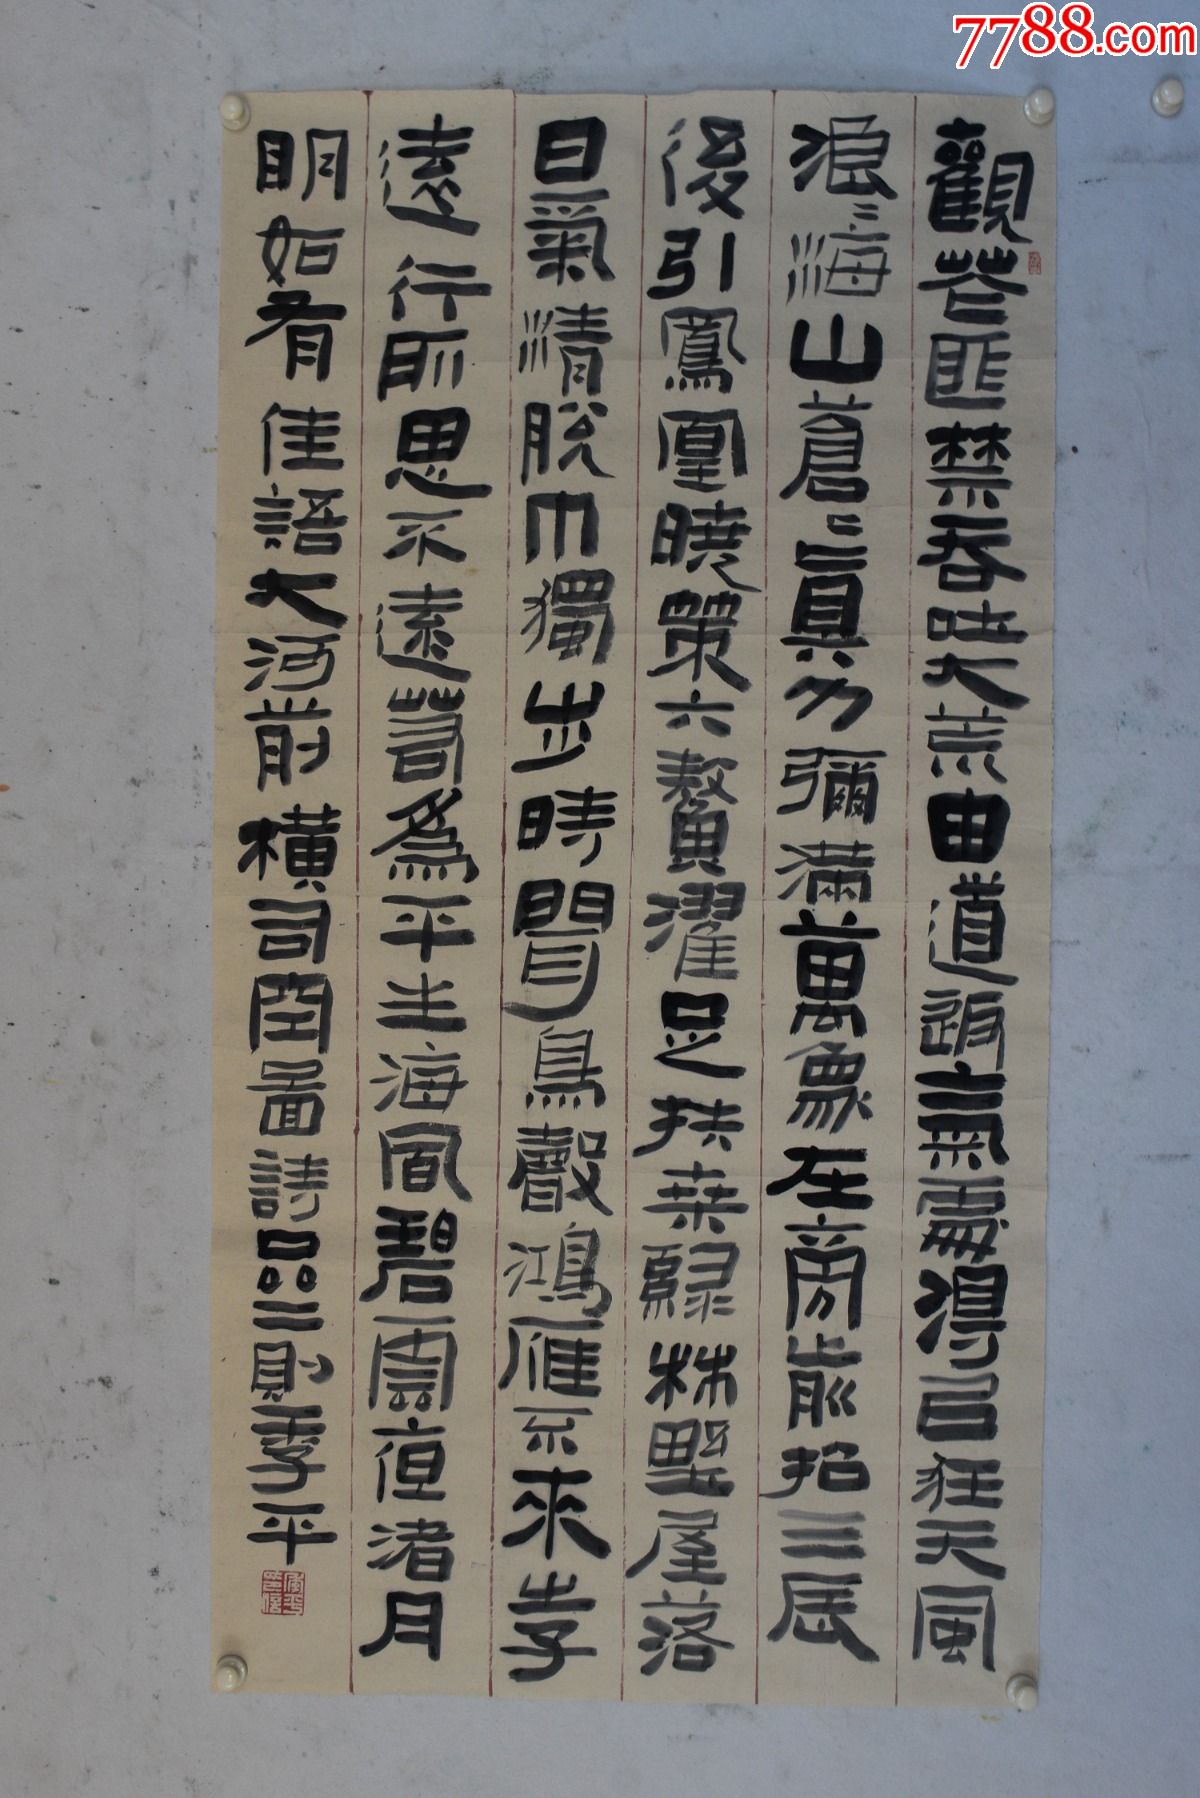 7788.com
觀花匪禁吞吐大荒由道返氣處得以狂天風
浪〻海山蒼〻真力彌滿萬象在旁前招三辰
後引鳳凰曉策六鰲濯足扶桑綠林野屋落
日氣清脫巾獨步時聞鳥聲鴻雁不來之子
遠行所思不遠若為平生海風碧雲夜渚月
明如有佳語大河前橫司空圖詩品二則季平